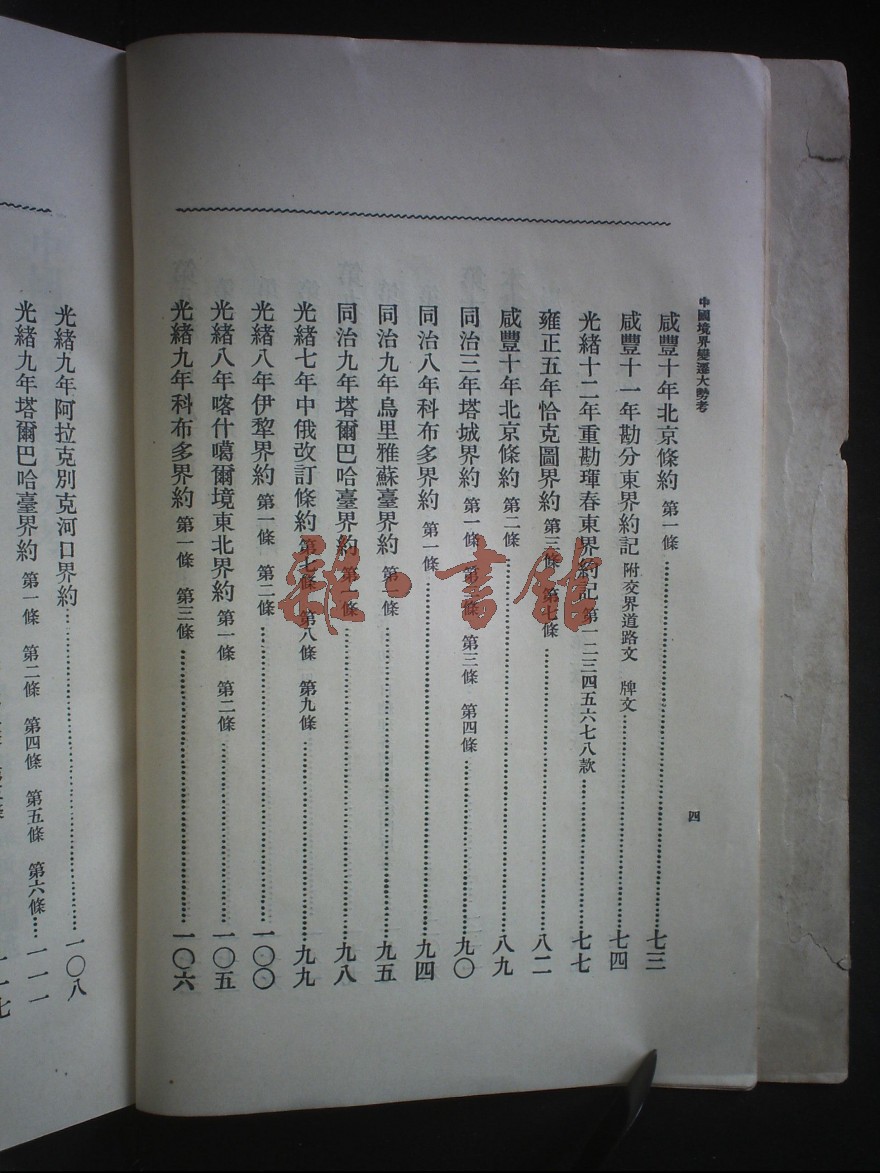 中國境界變遷大勢考
四
咸豐十年北京條約 第一條 七三
咸豐十一年勘分東界約記 附交界道路文 牌文 七四
光緒十二年重勘琿春東界約記 第一二三四五六七八款 七七
雍正五年恰克圖界約 第三條 第七條 八二
咸豐十年北京條約 第二條 八九
同治三年塔城界約 第一條 第二條 第三條 第四條 九〇
同治八年科布多界約 第一條 九四
同治九年烏里雅蘇臺界約 第一條 九五
同治九年塔爾巴哈臺界約 第一條 九八
光緒七年中俄改訂條約 第七條 第八條 第九條 九九
光緒八年伊犂界約 第一條 第二條 一〇〇
光緒八年喀什噶爾境東北界約 第一條 第二條 一〇五
光緒九年科布多界約 第一條 第三條 一〇六
光緒九年阿拉克別克河口界約 一〇八
光緒九年塔爾巴哈臺界約 第一條 第二條 第四條 第五條 第六條 一一一
一一七
雜·書館